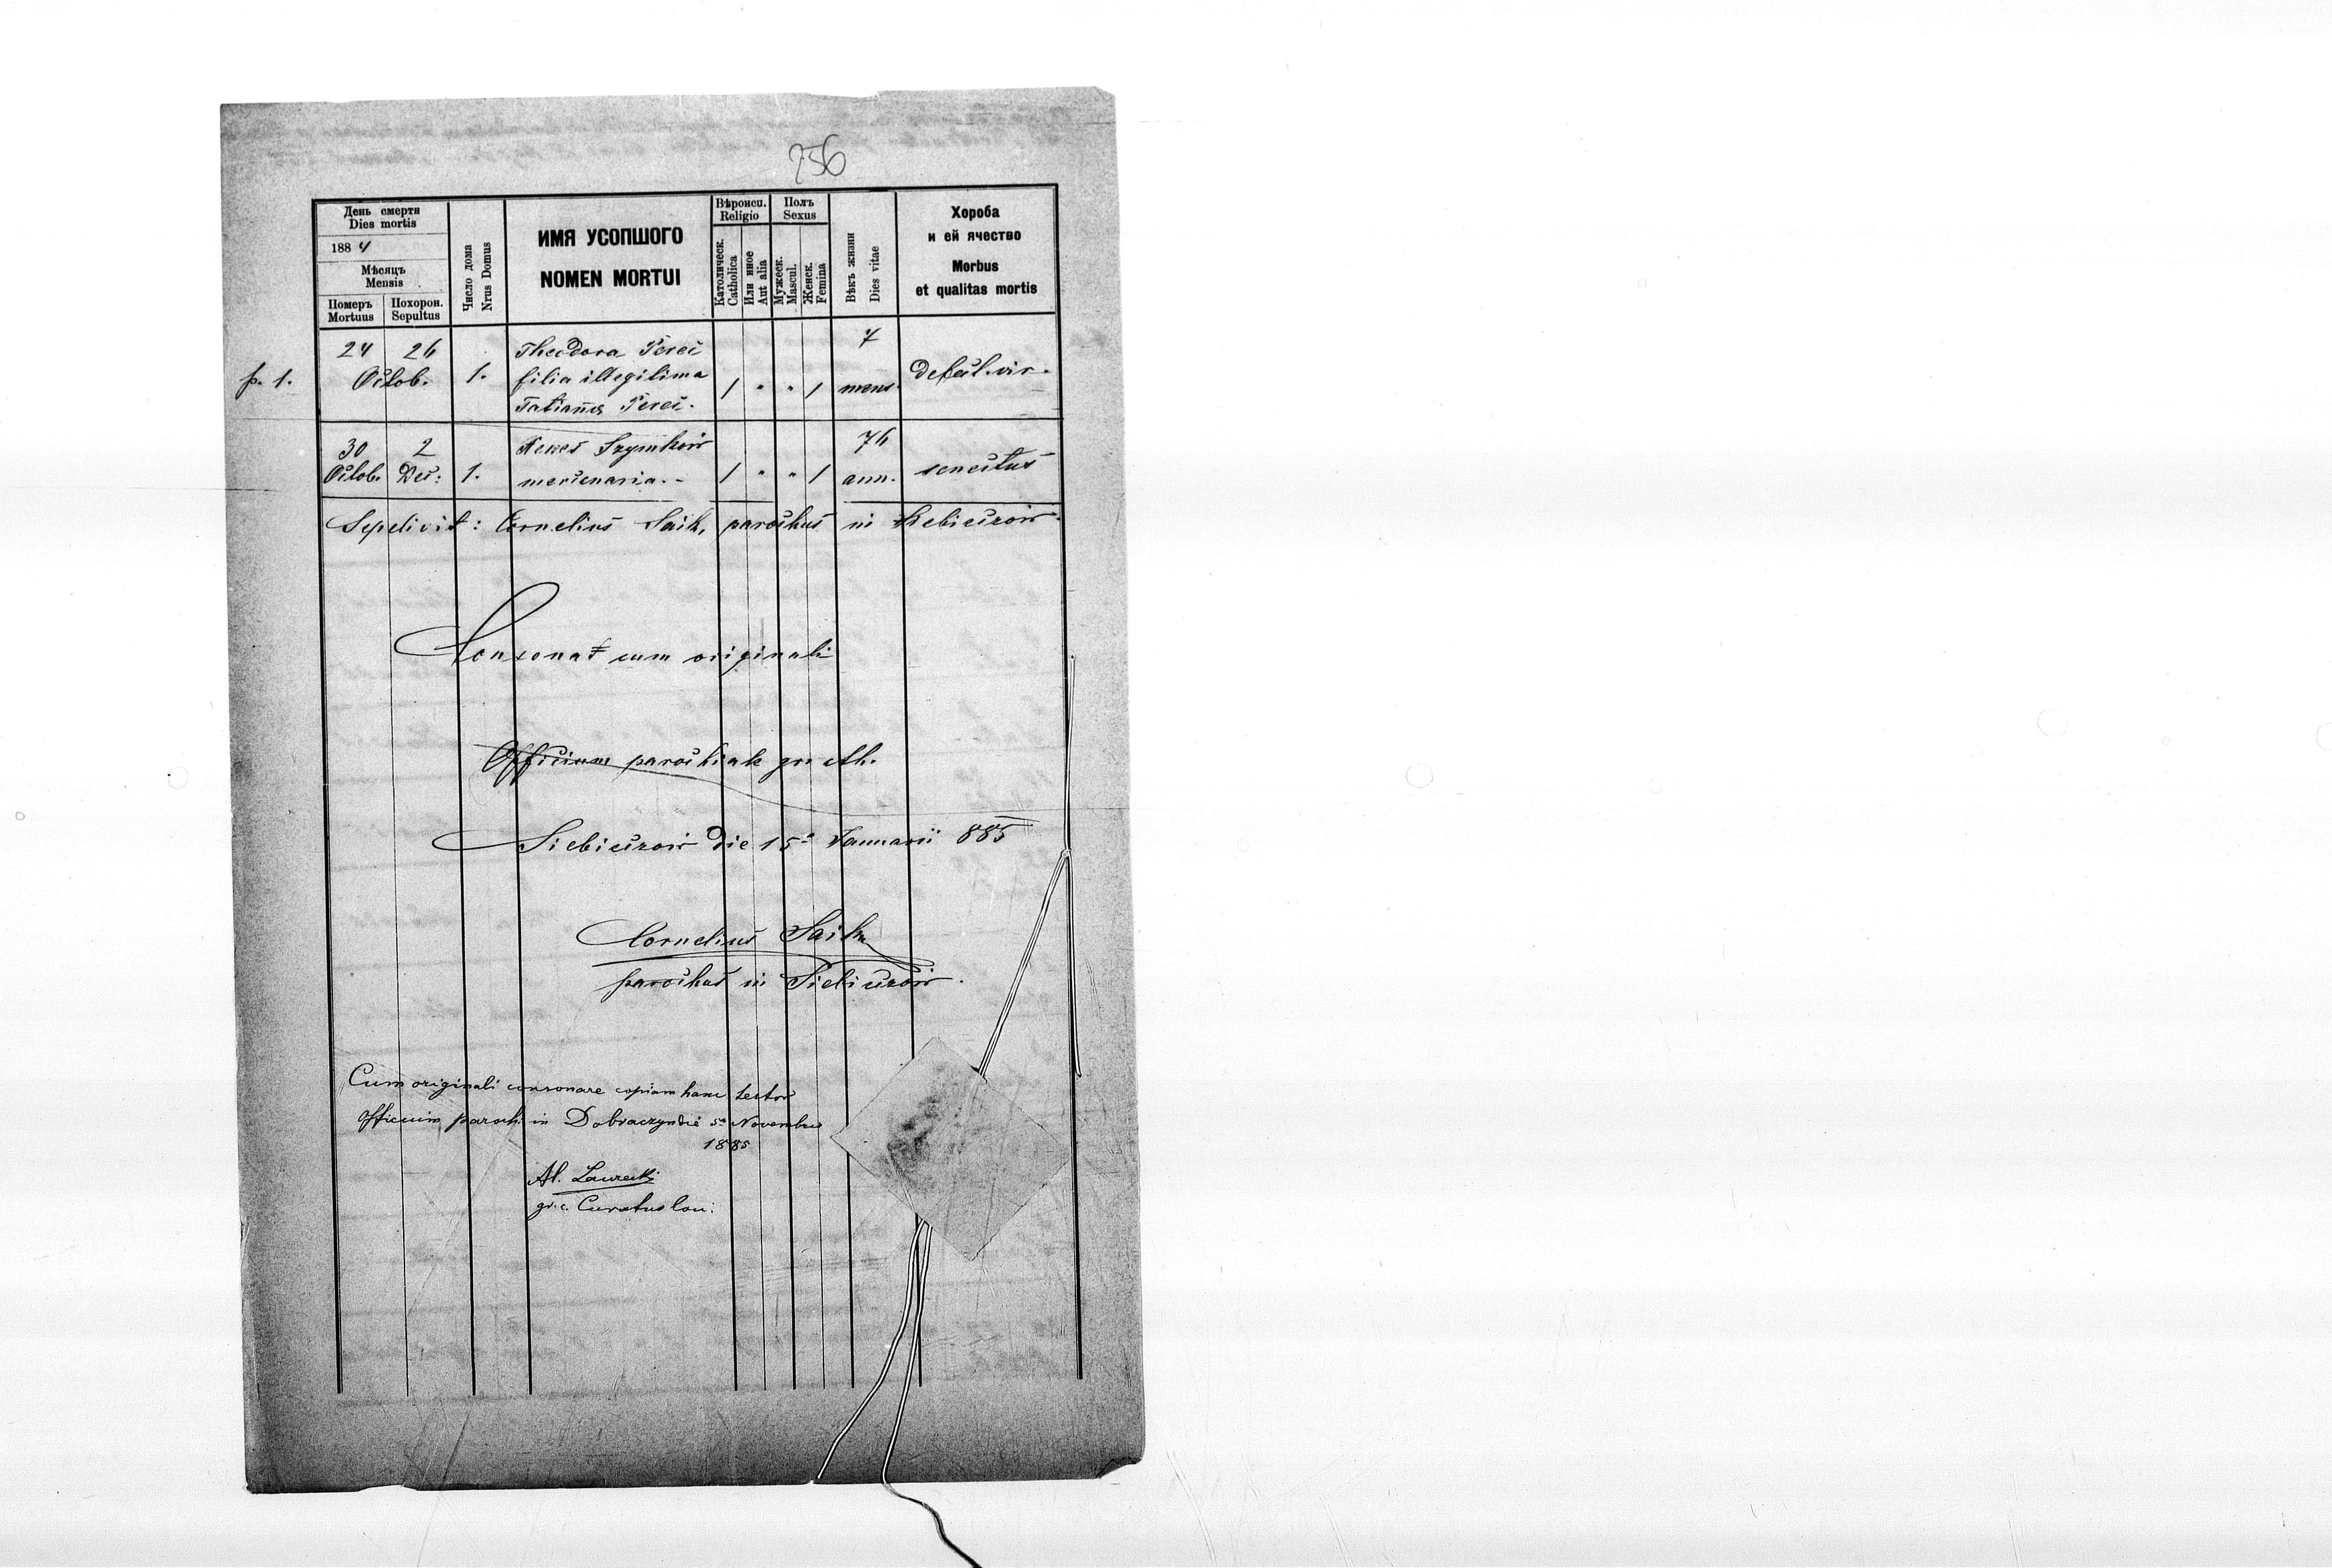 756
День смерти
Dies mortis
1884
Мѣсяцъ
Mensis
Померъ
Mortuus
Похорон.
Sepultus
Число дома
Nrus Domus
ИМЯ УСОПШОГО
NOMEN MORTUI
Вѣроисп.
Religio
Католическ.
Catholica
Или иное
Aut alia
Полъ
Sexus
Мужеск.
Mascul.
Женск.
Femina
Вѣкъ жизни
Dies vitae
Хороба
и ей ячество
Morbus
et qualitas mortis
p. 1.
24 26
Octob.
1.
Theodora
filia illegitima
Tatianæ
1 " " 1
7
mens.
30 2
Octob. Dec:
1.
mercenaria.-
1 " " 1
76
ann.
senectus
Sepelivit: Cornelius Saik, parochus in
Consonat cum originali
Officium parochiale gr.
die 15ª Januarii 885
Cornelius
parochus in
Cum originali consonare copiam hanc testor
Officium paroch. in die 5ª Novembris
1885
Al.
gr. c. Curatus